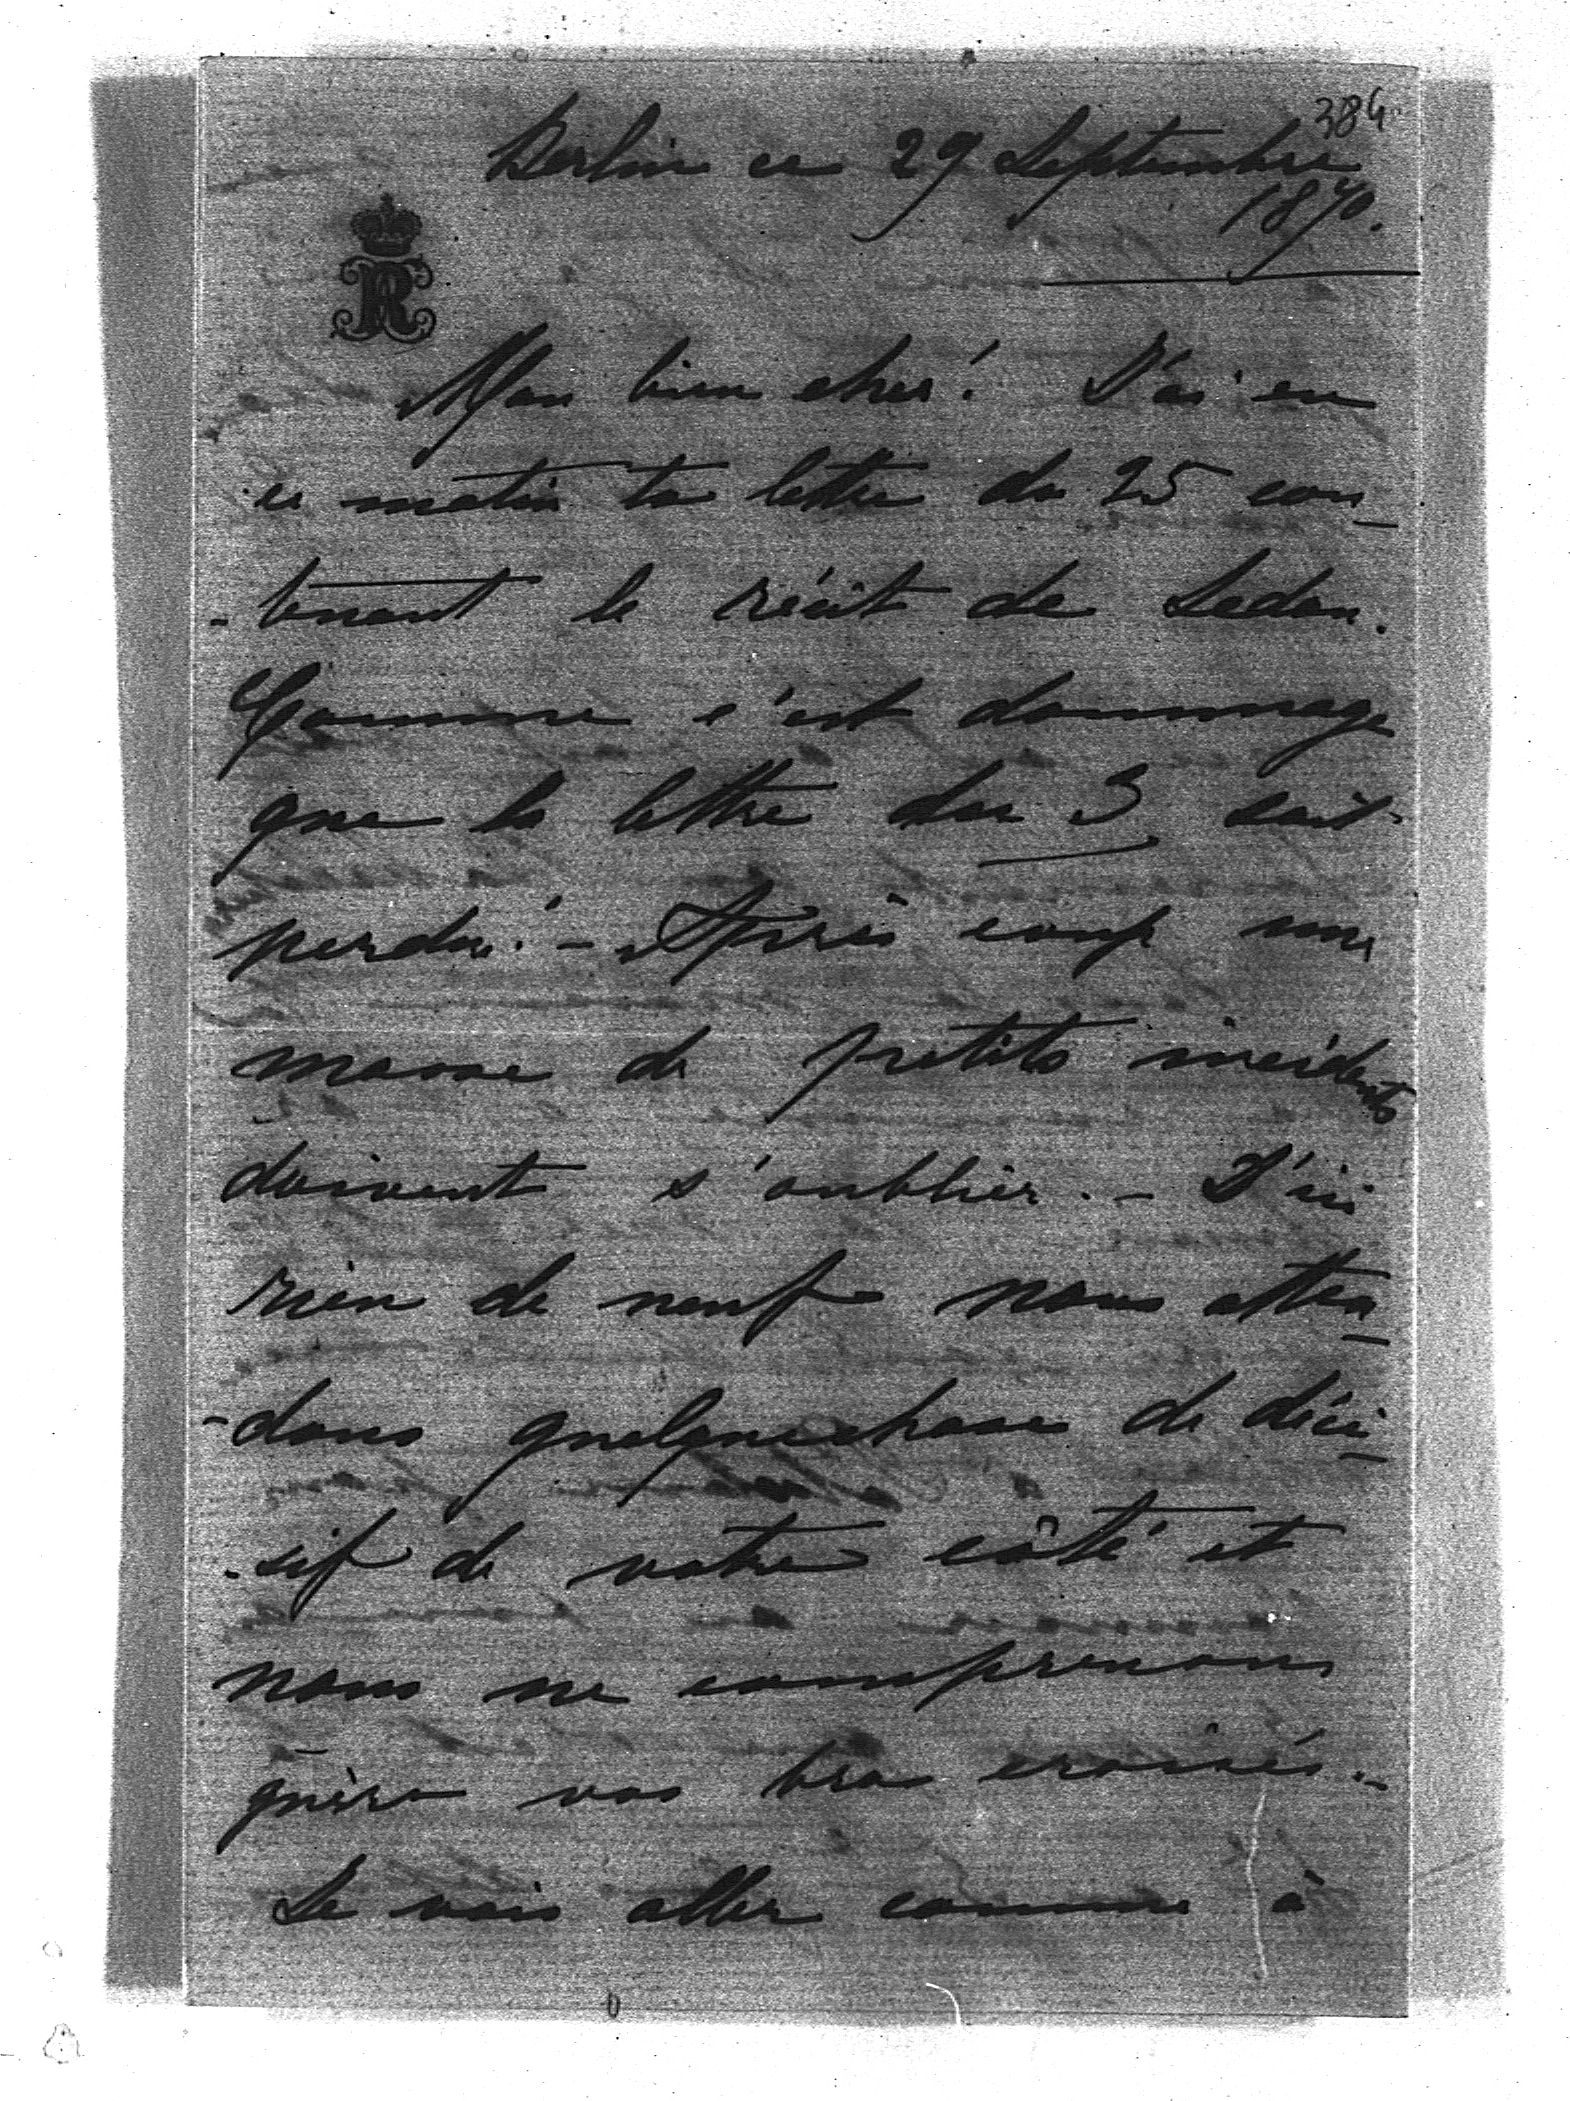 384
Berlin ce 29 Septembre
1870.
R
Mon bien cher! J'ai eu
ce matin ta lettre du 25 con_
-tenant le récit de Sedan.
Comme c'est dommage
que la lettre du 3 soit
perdu! - Après coup une
masse de petits incidents
doivent s'oublier. - D'ici
rien de neuf nous atten_
-dons quelquechose de déci_
-sif de votre côté et
nous ne comprenons
guère vos bras croisés. -
Je vais aller comme à